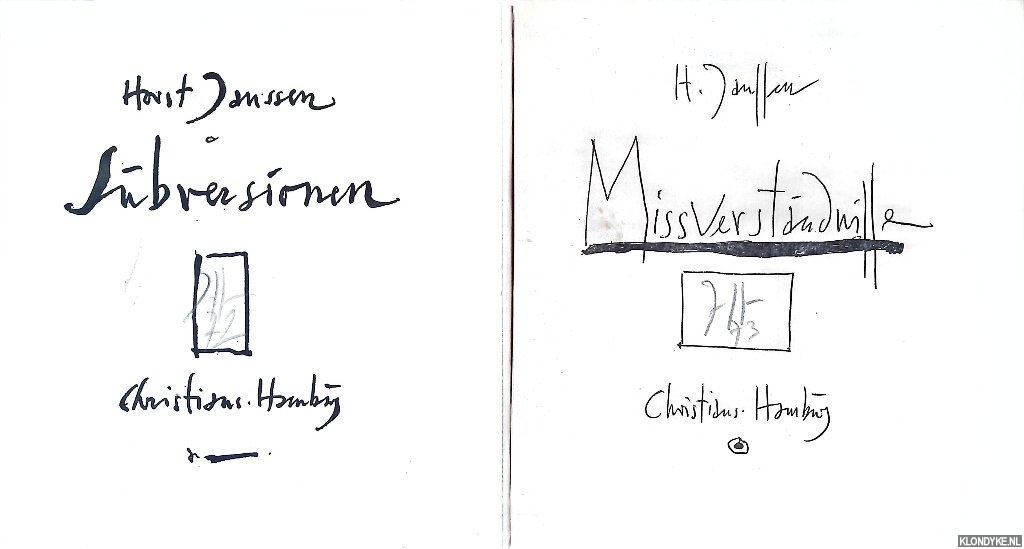 Horst Janssen
Subversionen
72
Christians. Hamburg
H. Janssen
Missverständnisse
73
Christians. Hamburg
KLONDYKE.NL